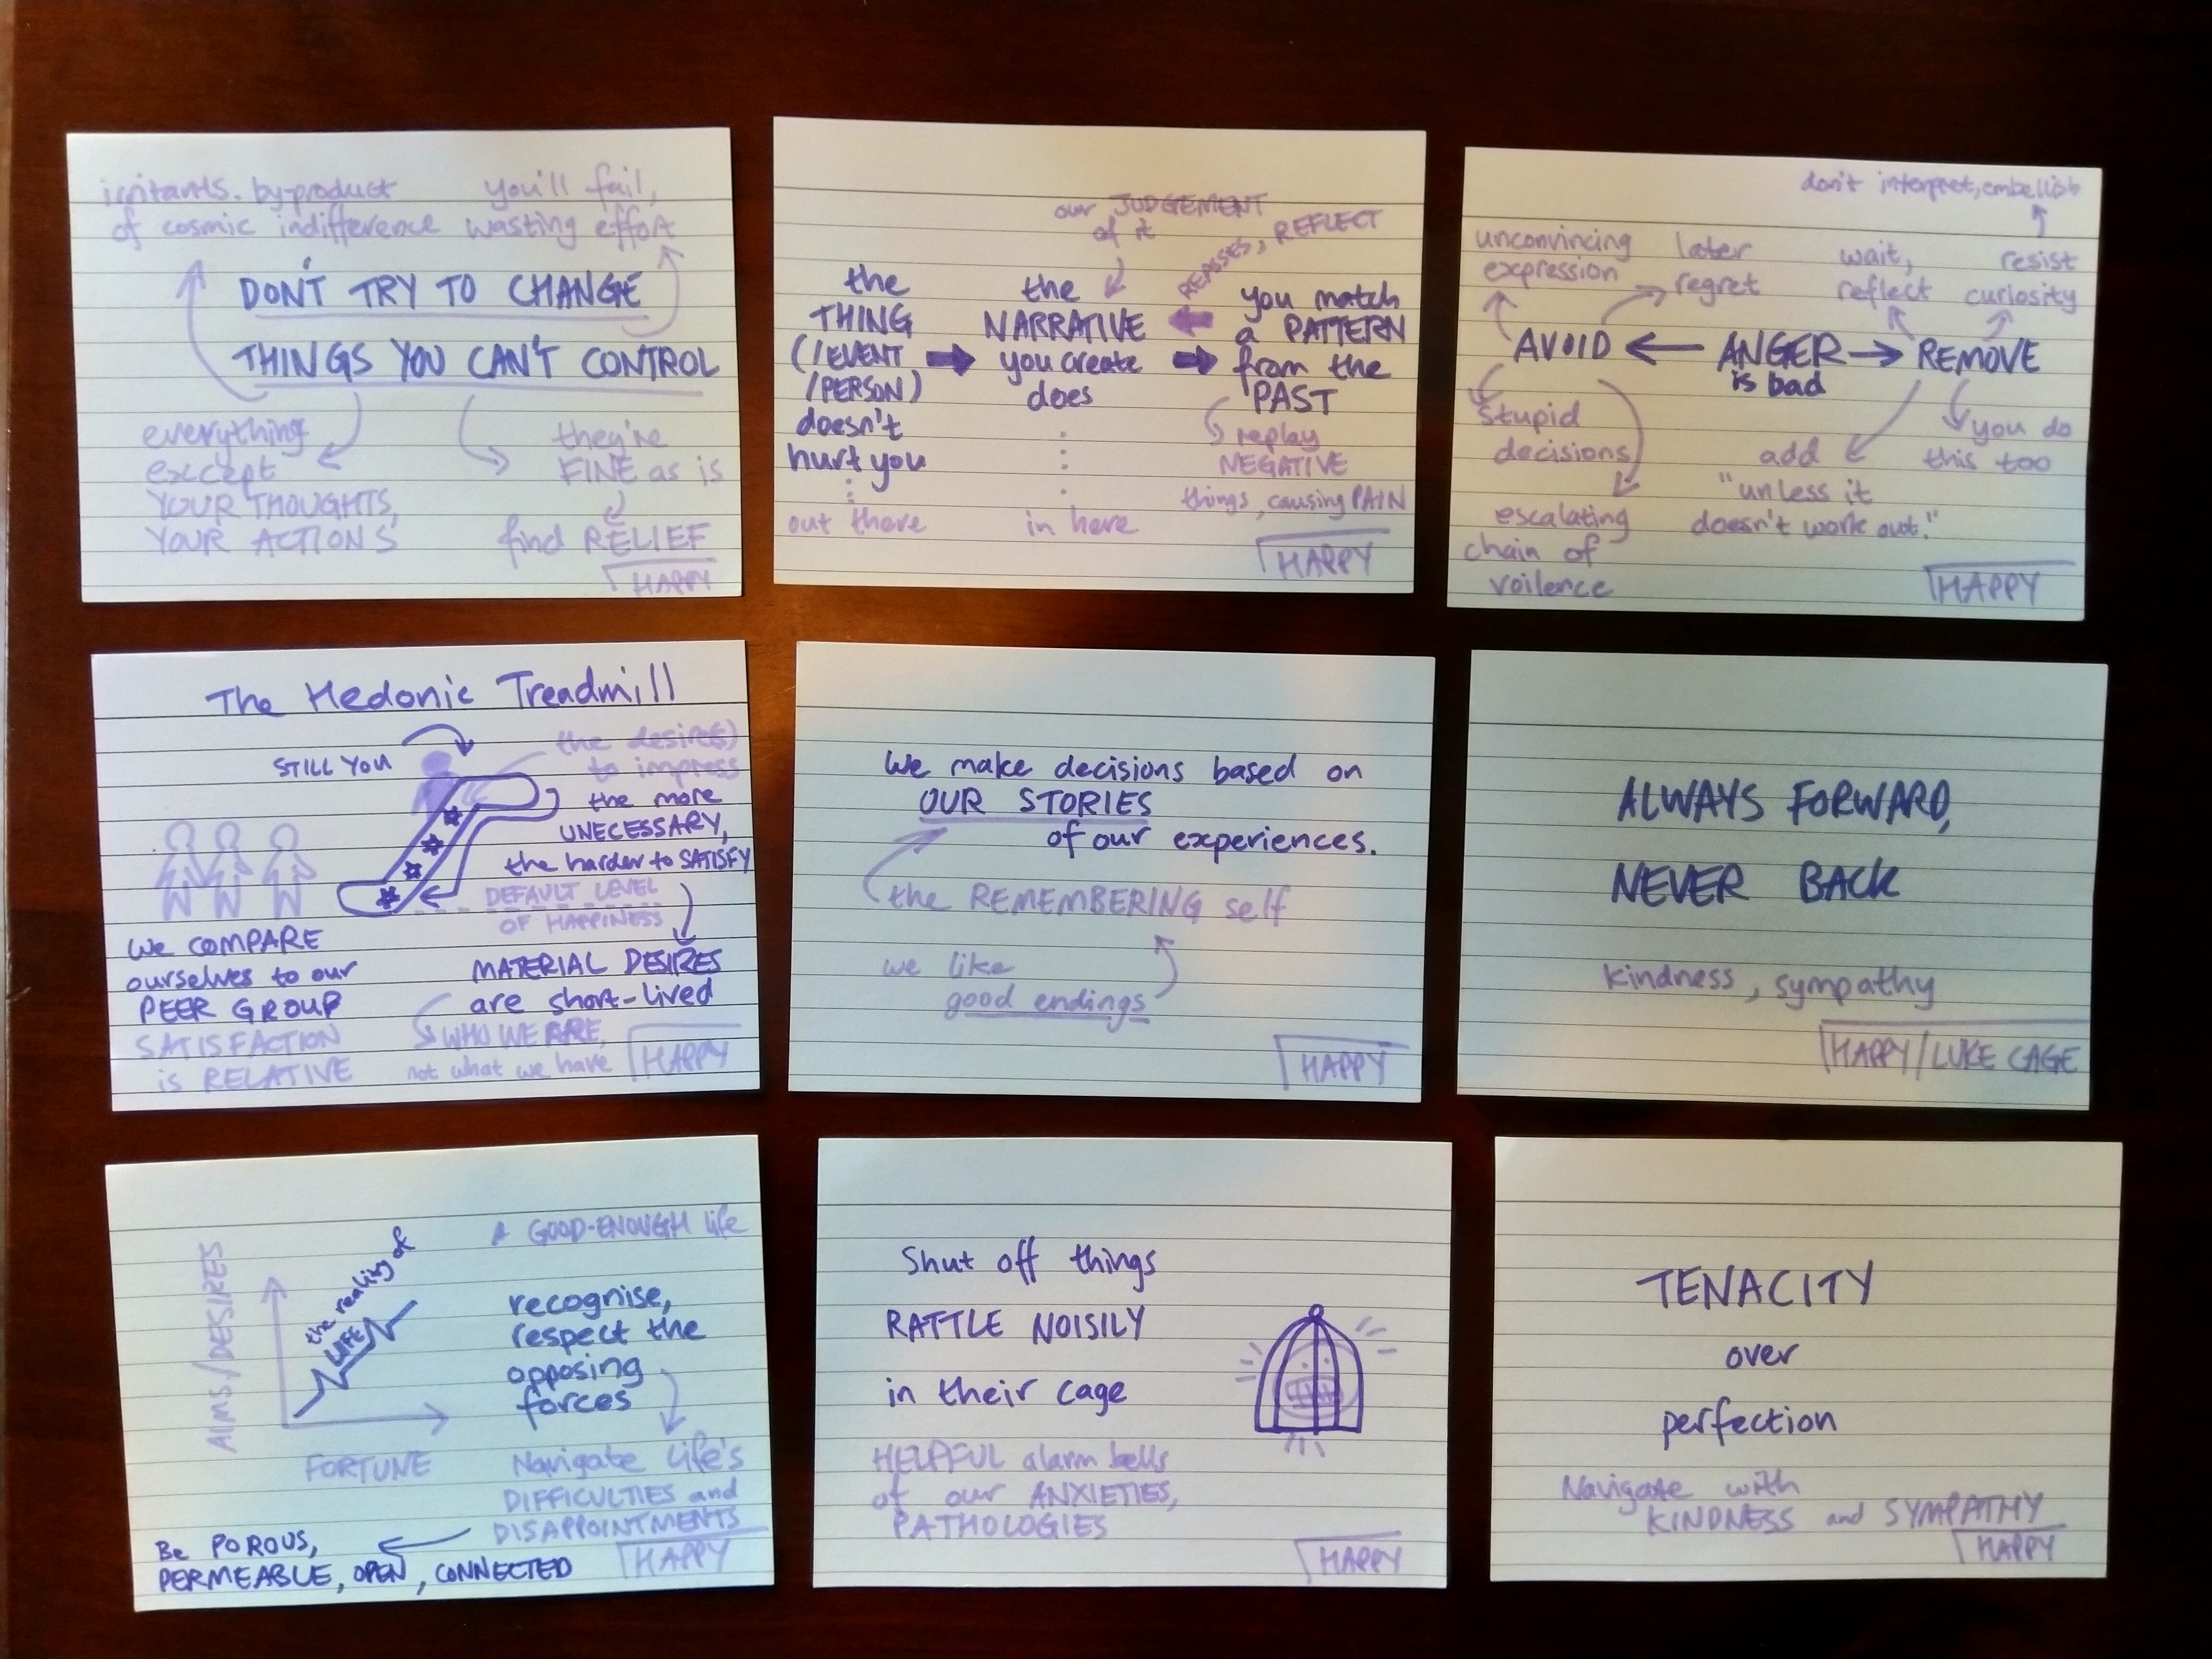 irritants. by-product
of cosmic indifference
you'll fail,
wasting effort
DON'T TRY TO CHANGE
THINGS YOU CAN'T CONTROL
everything
except
YOUR THOUGHTS,
YOUR ACTIONS
they're
FINE as is
find RELIEF
HAPPY
our JUDGEMENT
of it
REASSES, REFLECT
the
THING
(/EVENT
/PERSON)
doesn't
hurt you
out there
the
NARRATIVE
you create
does
in here
you match
a PATTERN
from the
PAST
replay
NEGATIVE
things, causing PAIN
HAPPY
don't interpret, embellish
unconvincing
expression
later
regret
wait,
reflect
resist
curiosity
AVOID
ANGER
is bad
REMOVE
stupid
decisions
escalating
chain of
voilence
add
"unless it
doesn't work out."
you do
this too
HAPPY
The Hedonic Treadmill
STILL YOU
the desire(s)
to impress
the more
UNECESSARY,
the harder to SATISFY
DEFAULT LEVEL
OF HAPPINESS
We COMPARE
ourselves to our
PEER GROUP
SATISFACTION
is RELATIVE
MATERIAL DESIRES
are short-lived
WHO WE ARE,
not what we have
HAPPY
We make decisions based on
OUR STORIES
of our experiences.
the REMEMBERING self
we like
good endings
HAPPY
ALWAYS FORWARD,
NEVER BACK
kindness, sympathy
HAPPY/LUKE CAGE
AIMS/DESIRES
the reality of
LIFE
FORTUNE
A GOOD-ENOUGH life
recognise,
respect the
opposing
forces
Navigate life's
DIFFICULTIES and
DISAPPOINTMENTS
Be POROUS,
PERMEABLE, OPEN, CONNECTED
HAPPY
Shut off things
RATTLE NOISILY
in their cage
HELPFUL alarm bells
of our ANXIETIES,
PATHOLOGIES
HAPPY
TENACITY
over
perfection
Navigate with
KINDNESS and SYMPATHY
HAPPY